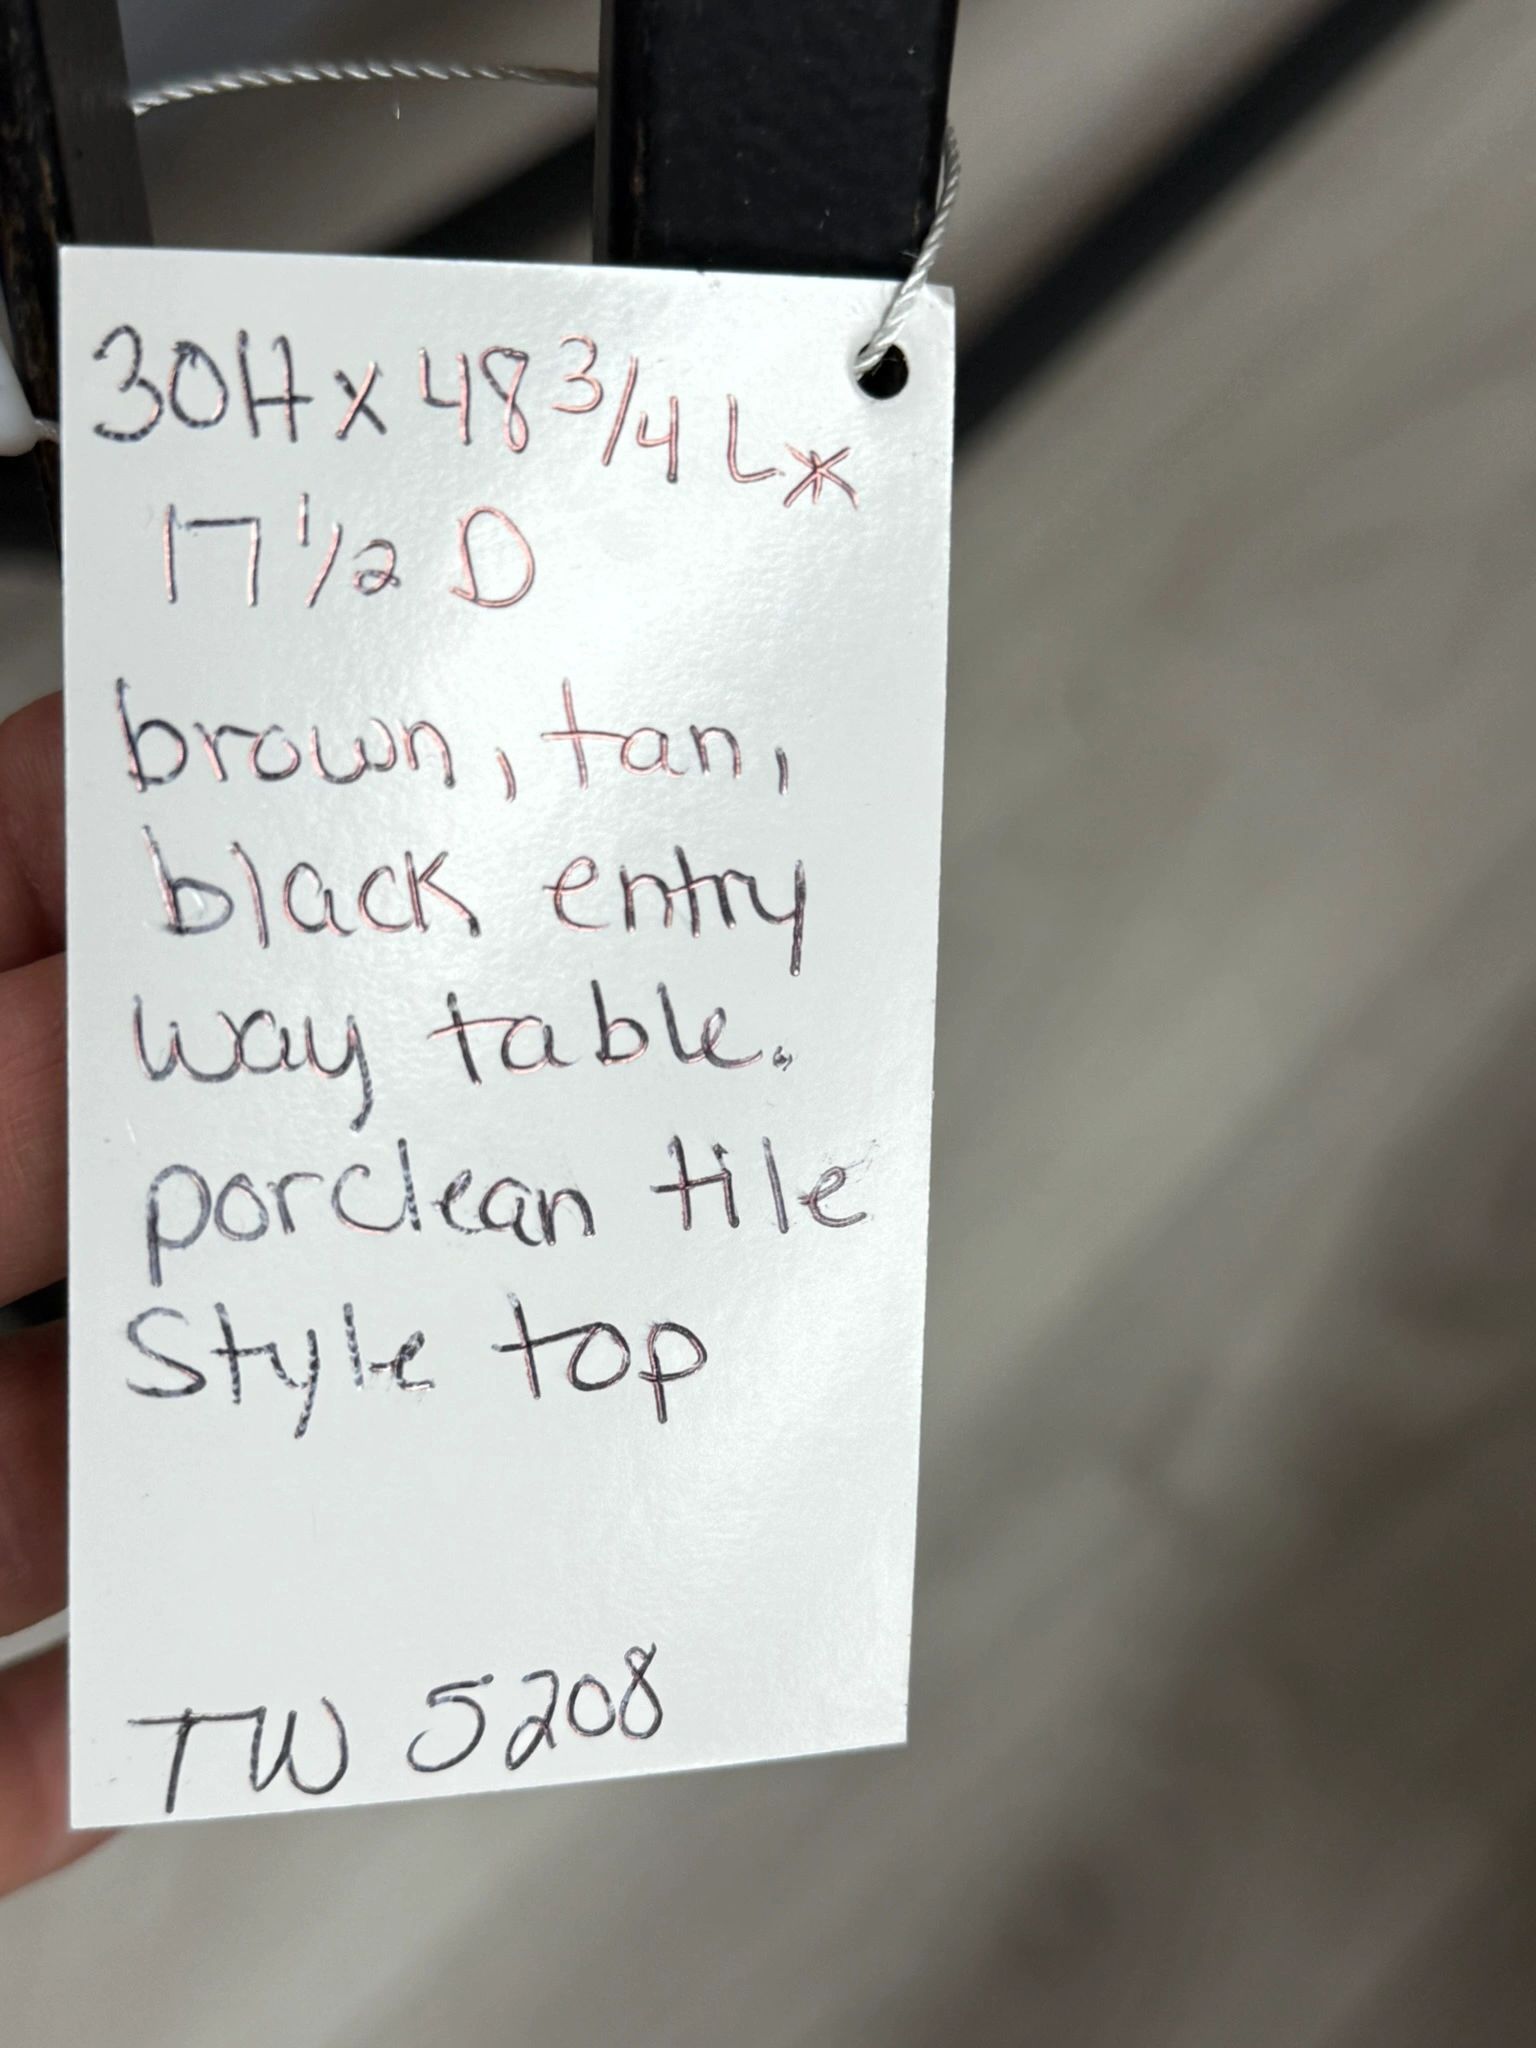 30H x 48 3/4 L x
17 1/2 D
brown, tan,
black entry
way table.
porclean tile
Style top
TW 5208